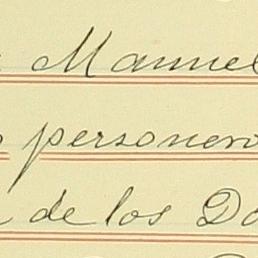 Manuel
personero
de los Do